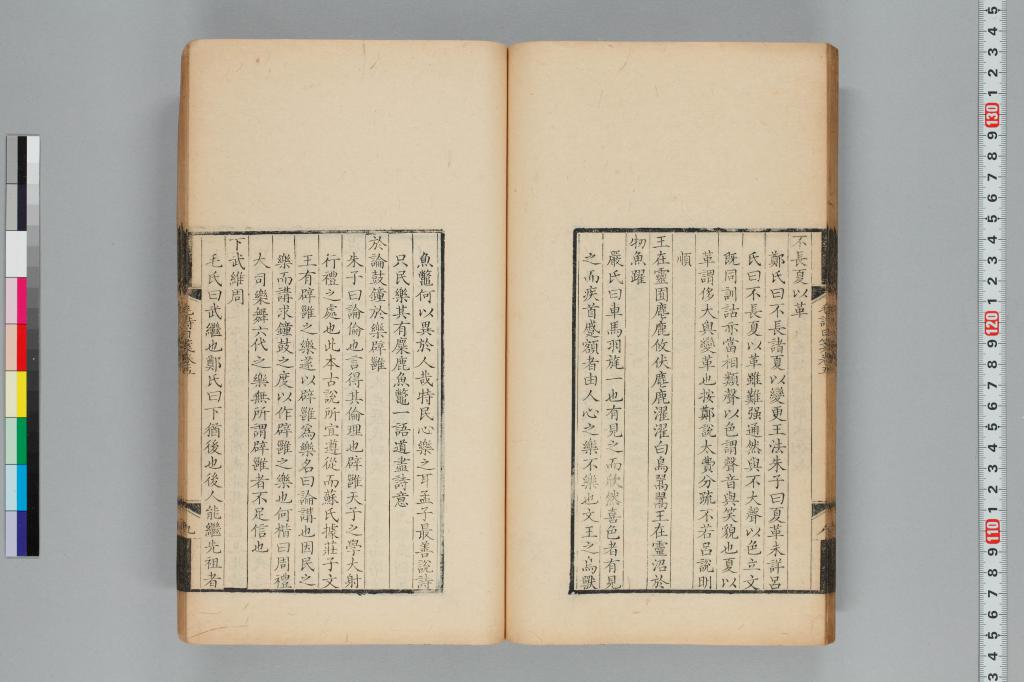 不長夏以革
鄭氏曰不長諸夏以變更王法朱子曰夏革未詳呂
氏曰不長夏以革雖難强通然與不大聲以色立文
旣同訓詁亦當相類聲以色謂聲音與笑貌也夏以
革謂侈大與變革也按鄭說太費分疏不若呂說明
順
王在靈囿麀鹿攸伏麀鹿濯濯白鳥翯翯王在靈沼於
牣魚躍
嚴氏曰車馬羽旄一也有見之而欣然喜色者有見
之而疾首蹙額者由人心之樂不樂也文王之鳥獸
魚鼈何以異於人哉特民心樂之耳孟子最善說詩
只民樂其有麋鹿魚鼈一語道盡詩意
於論鼓鐘於樂辟雝
朱子曰論倫也言得其倫理也辟雝天子之學大射
行禮之處也此本古說所宜遵從而蘇氏據莊子文
王有辟雝之樂遂以辟雝爲樂名曰論講也因民之
樂而講求鐘鼓之度以作辟雝之樂也何楷曰周禮
大司樂舞六代之樂無所謂辟雝者不足信也
下武維周
毛氏曰武繼也鄭氏曰下猶後也後人能繼先祖者